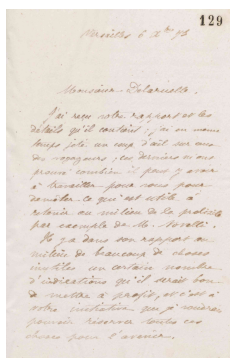 129
Monsieur Delaruelle.
J'ai reçu votre rapport et les
détails qu'il contient ; j'ai en même
temps jeté un coup d'œil sur ceux
des voyageurs ; ces derniers m'ont
prouvé combien il peut y avoir
à travailler pour nous pour
démêler ce qui est utile à
retenir au milieu de la
par exemple de M.
Il y a dans son rapport au
milieu de beaucoup de choses
inutiles un certain nombre
d'indications qu'il serait bon
de mettre à profit, et c'est à
votre initiative que je voudrais
pouvoir réserver toutes ces
choses pour l'avenir.